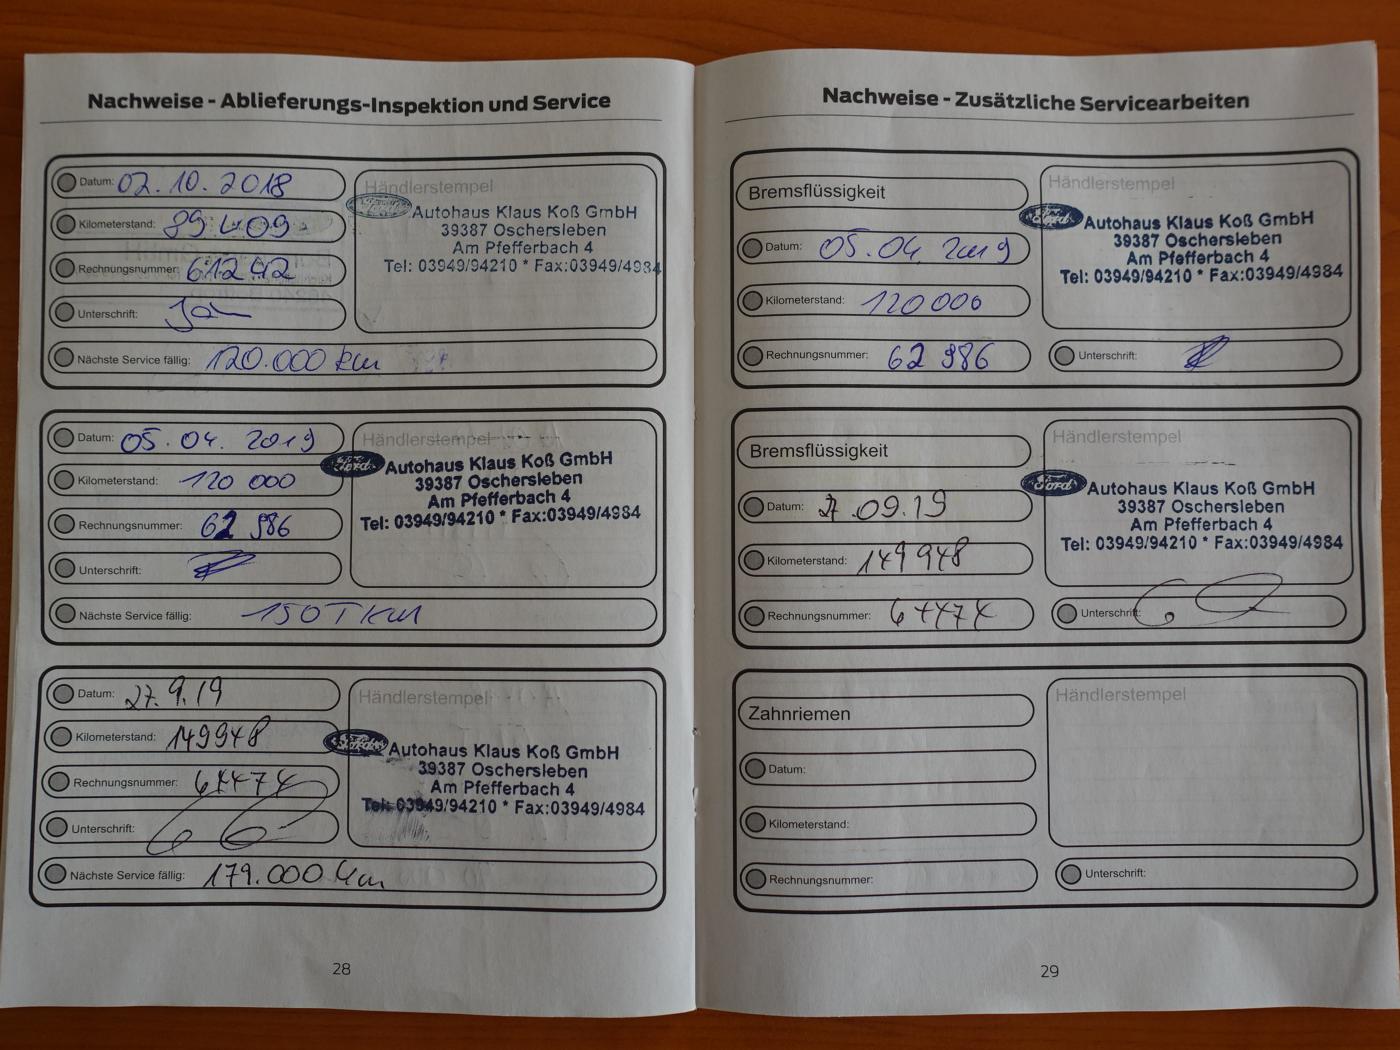 Nachweise - Ablieferungs-Inspektion und Service
Datum: 02.10.2018
Kilometerstand: 89409
Rechnungsnummer: 61242
Unterschrift:
Nächste Service fällig: 120.000 km
Händlerstempel
Ford Autohaus Klaus Koß GmbH
39387 Oschersleben
Am Pfefferbach 4
Tel: 03949/94210 * Fax:03949/4984
Datum: 05.04.2019
Kilometerstand: 120 000
Rechnungsnummer: 62 986
Unterschrift:
Nächste Service fällig: 150 T km
Händlerstempel
Ford Autohaus Klaus Koß GmbH
39387 Oschersleben
Am Pfefferbach 4
Tel: 03949/94210 * Fax:03949/4984
Datum: 27.9.19
Kilometerstand: 149948
Rechnungsnummer: 64474
Unterschrift:
Nächste Service fällig: 179.000 km
Händlerstempel
Autohaus Klaus Koß GmbH
39387 Oschersleben
Am Pfefferbach 4
Tel: 03949/94210 * Fax:03949/4984
28
Nachweise - Zusätzliche Servicearbeiten
Bremsflüssigkeit
Datum: 05.04 2019
Kilometerstand: 120 000
Rechnungsnummer: 62 986
Händlerstempel
Ford Autohaus Klaus Koß GmbH
39387 Oschersleben
Am Pfefferbach 4
Tel: 03949/94210 * Fax:03949/4984
Unterschrift:
Bremsflüssigkeit
Datum: 27.09.19
Kilometerstand: 149948
Rechnungsnummer: 64474
Händlerstempel
Ford Autohaus Klaus Koß GmbH
39387 Oschersleben
Am Pfefferbach 4
Tel: 03949/94210 * Fax:03949/4984
Unterschrift:
Zahnriemen
Datum:
Kilometerstand:
Rechnungsnummer:
Händlerstempel
Unterschrift:
29